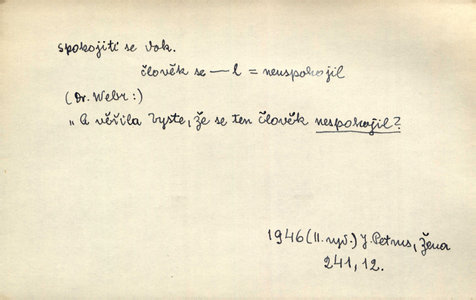 spokojiti se dok.
člověk se — l = neuspokojil
(Dr. Webr:)
„A věřila byste, že se ten člověk nespokojil?
1946 (II. vyd.) J. Petrus, Žena
241, 12.